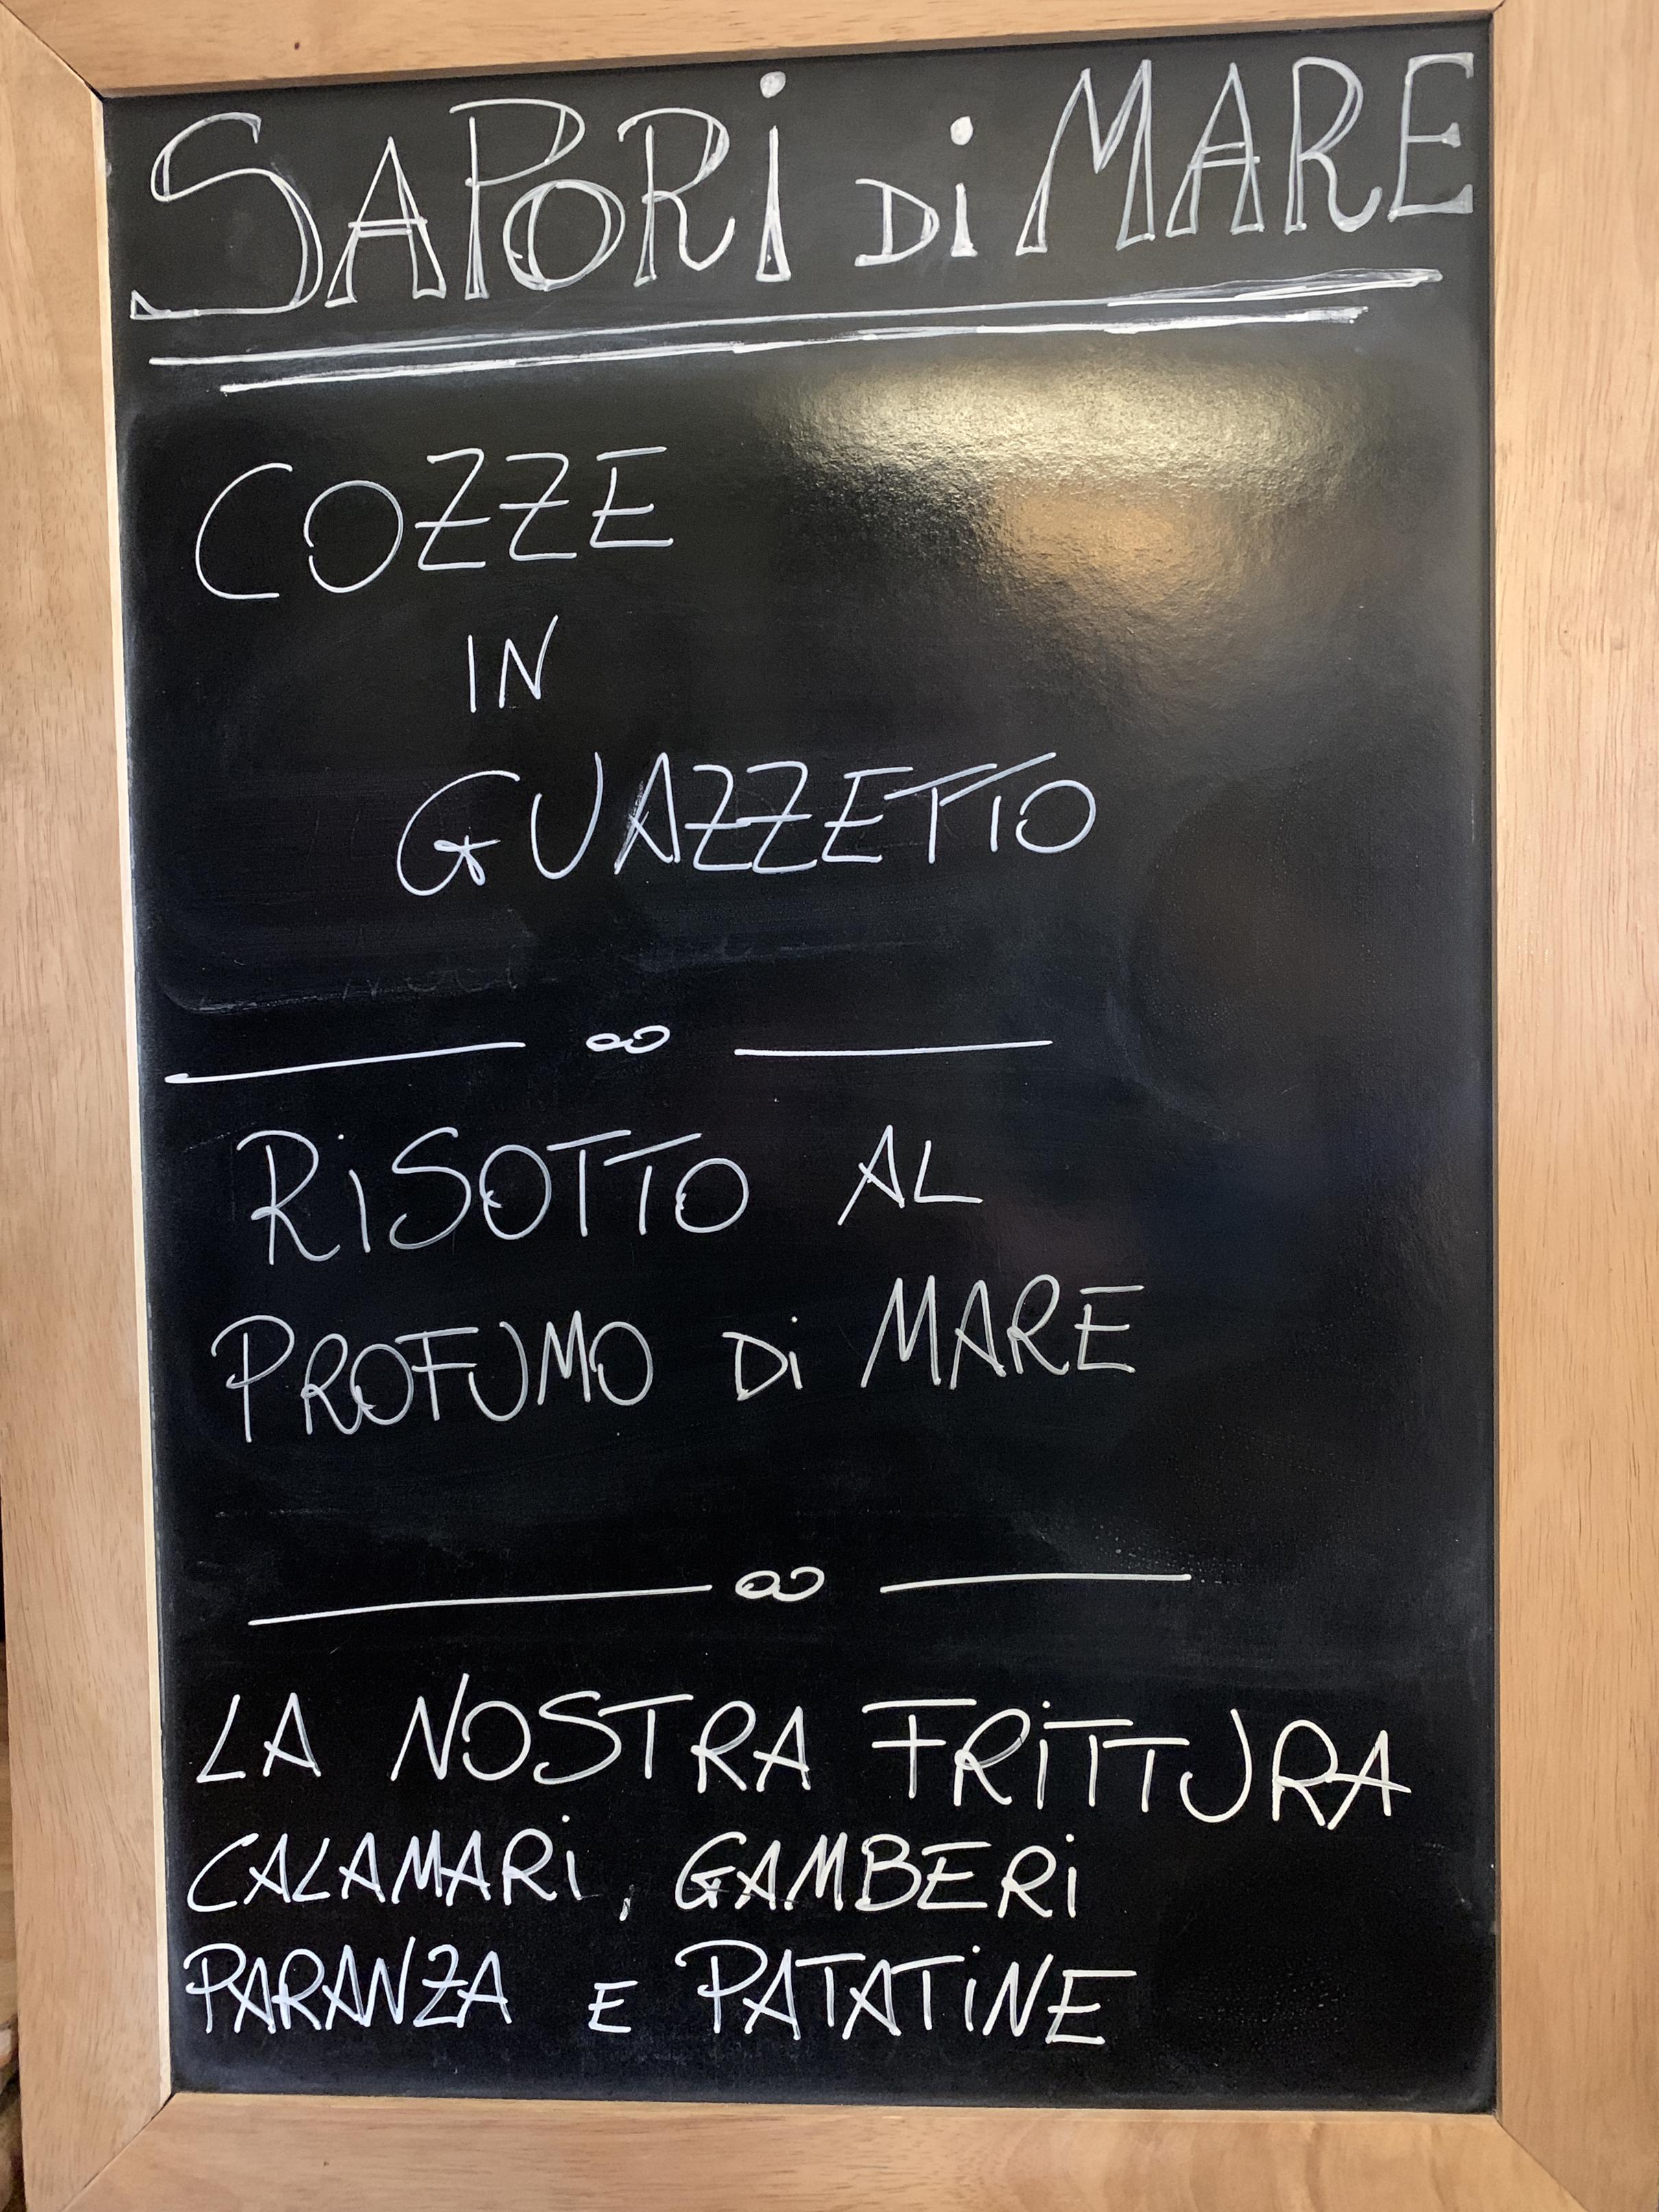 SAPORI DI MARE
COZZE
IN
GUAZZETTO
RISOTTO AL
PROFUMO DI MARE
LA NOSTRA FRITTURA
CALAMARI, GAMBERI
PARANZA E PATATINE